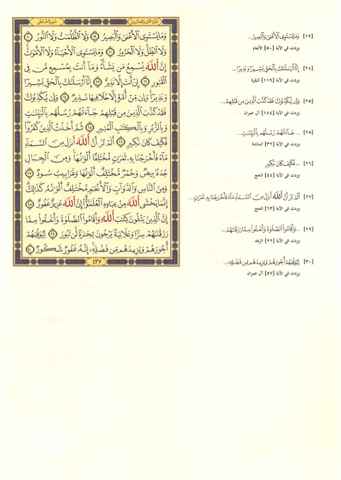 سُورَةُ فَاطِرٍ
الجزء الثاني والعشرون
وَمَا يَسْتَوِي الْأَعْمَىٰ وَالْبَصِيرُ ١٩ وَلَا الظُّلُمَاتُ وَلَا النُّورُ ٢٠
وَلَا الظِّلُّ وَلَا الْحَرُورُ ٢١ وَمَا يَسْتَوِي الْأَحْيَاءُ وَلَا الْأَمْوَاتُ
إِنَّ اللَّهَ يُسْمِعُ مَن يَشَاءُ وَمَا أَنتَ بِمُسْمِعٍ مَّن فِي
الْقُبُورِ ٢٢ إِنْ أَنتَ إِلَّا نَذِيرٌ ٢٣ إِنَّا أَرْسَلْنَاكَ بِالْحَقِّ بَشِيرًا
وَنَذِيرًا وَإِن مِّنْ أُمَّةٍ إِلَّا خَلَا فِيهَا نَذِيرٌ ٢٤ وَإِن يُكَذِّبُوكَ
فَقَدْ كَذَّبَ الَّذِينَ مِن قَبْلِهِمْ جَاءَتْهُمْ رُسُلُهُم بِالْبَيِّنَاتِ
وَبِالزُّبُرِ وَبِالْكِتَابِ الْمُنِيرِ ٢٥ ثُمَّ أَخَذْتُ الَّذِينَ كَفَرُوا
فَكَيْفَ كَانَ نَكِيرِ ٢٦ أَلَمْ تَرَ أَنَّ اللَّهَ أَنزَلَ مِنَ السَّمَاءِ
مَاءً فَأَخْرَجْنَا بِهِ ثَمَرَاتٍ مُّخْتَلِفًا أَلْوَانُهَا وَمِنَ الْجِبَالِ
جُدَدٌ بِيضٌ وَحُمْرٌ مُّخْتَلِفٌ أَلْوَانُهَا وَغَرَابِيبُ سُودٌ ٢٧
وَمِنَ النَّاسِ وَالدَّوَابِّ وَالْأَنْعَامِ مُخْتَلِفٌ أَلْوَانُهُ كَذَٰلِكَ
إِنَّمَا يَخْشَى اللَّهَ مِنْ عِبَادِهِ الْعُلَمَاءُ إِنَّ اللَّهَ عَزِيزٌ غَفُورٌ ٢٨
إِنَّ الَّذِينَ يَتْلُونَ كِتَابَ اللَّهِ وَأَقَامُوا الصَّلَاةَ وَأَنفَقُوا مِمَّا
رَزَقْنَاهُمْ سِرًّا وَعَلَانِيَةً يَرْجُونَ تِجَارَةً لَّن تَبُورَ ٢٩ لِيُوَفِّيَهُمْ
أُجُورَهُمْ وَيَزِيدَهُم مِّن فَضْلِهِ إِنَّهُ غَفُورٌ شَكُورٌ ٣٠
٤٣٧
[١٩] وَمَا يَسْتَوِي الْأَعْمَىٰ وَالْبَصِيرُ...
وردت في الآية [٥٠] الأنعام
[٢٤] إِنَّا أَرْسَلْنَاكَ بِالْحَقِّ بَشِيرًا وَنَذِيرًا...
وردت في الآية [١١٩] البقرة
[٢٥] وَإِن يُكَذِّبُوكَ فَقَدْ كَذَّبَ الَّذِينَ مِن قَبْلِهِمْ...
وردت في الآية [١٨٤] آل عمران
[٢٥] ...جَاءَتْهُمْ رُسُلُهُم بِالْبَيِّنَاتِ...
وردت في الآية [٣٢] المائدة
[٢٦] ...فَكَيْفَ كَانَ نَكِيرِ
وردت في الآية [٤٤] الحج
[٢٧] أَلَمْ تَرَ أَنَّ اللَّهَ أَنزَلَ مِنَ السَّمَاءِ مَاءً فَأَخْرَجْنَا بِهِ ثَمَرَاتٍ...
وردت في الآية [٦٣] الحج
[٢٩] ...وَأَقَامُوا الصَّلَاةَ وَأَنفَقُوا مِمَّا رَزَقْنَاهُمْ...
وردت في الآية [٢٢] الرعد
[٣٠] لِيُوَفِّيَهُمْ أُجُورَهُمْ وَيَزِيدَهُم مِّن فَضْلِهِ...
وردت في الآية [٥٧] آل عمران